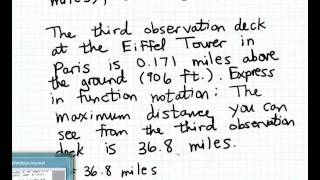 miles),
The third observation deck
at the Eiffel Tower in
Paris is 0.171 miles above
the ground (906 ft.). Express
in function notation: The
maximum distance you can
see from the third observation
deck is 36.8 miles.
= 36.8 miles